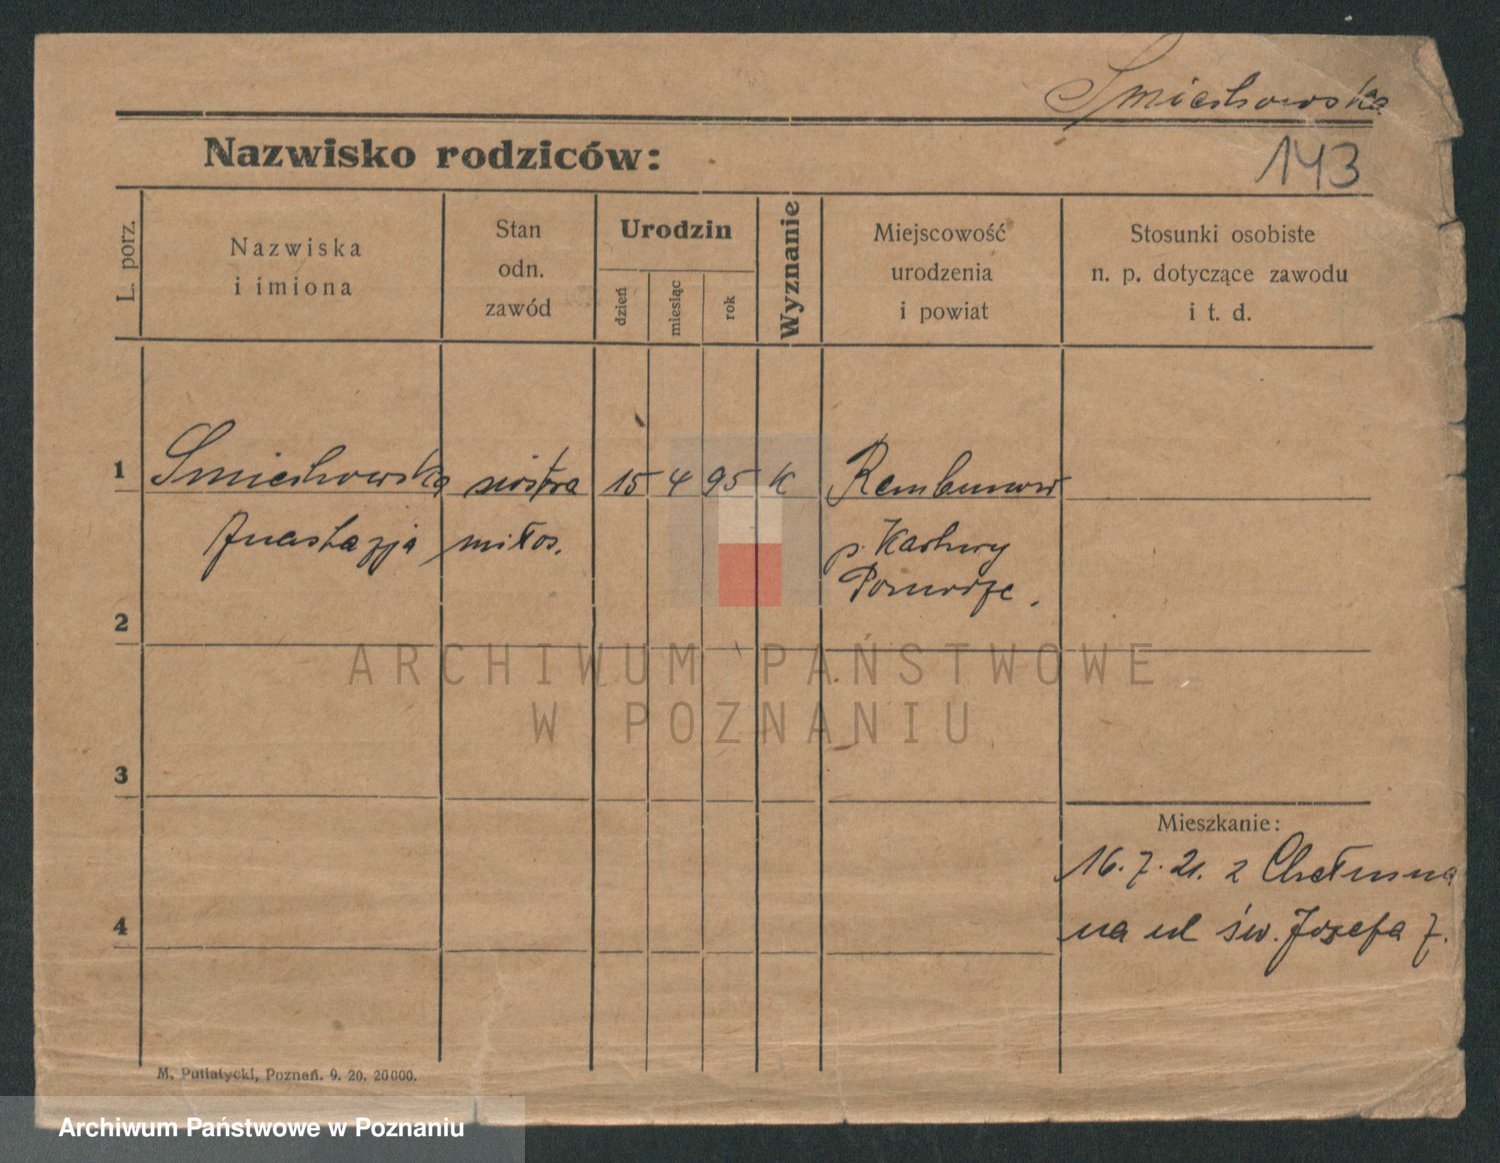 Śmiechowska
143
Nazwisko rodziców:
L. porz.
Nazwiska
i imiona
Stan
odn.
zawód
Urodzin
dzień
miesiąc
rok
Wyznanie
Miejscowość
urodzenia
i powiat
Stosunki osobiste
n. p. dotyczące zawodu
i t. d.
1 Śmiechowska siostra 15 4 95 K
Anastazja miłos. p. Kartuzy
Pomorze.
2
3
4
Mieszkanie:
16.7.21. z Chełmna
na ul św. Józefa 7.
M. Putiatycki, Poznań. 9. 20. 20000.
ARCHIWUM PAŃSTWOWE
W POZNANIU
Archiwum Państwowe w Poznaniu